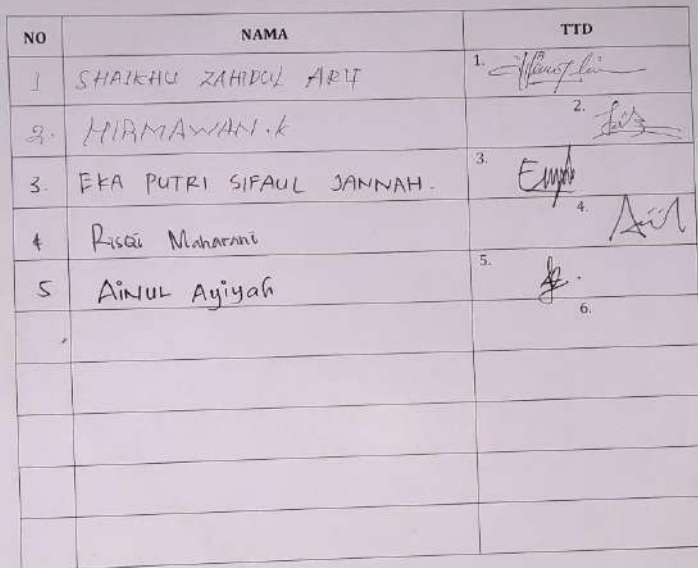 NO NAMA TTD
1 SHAIKHU ZAHIDUL ARIF 1.
2. HIRMAWAN.K 2.
3. EKA PUTRI SIFAUL JANNAH. 3.
4 Risqi Maharani 4.
5 AiNUL Ayiyah 5.
6.